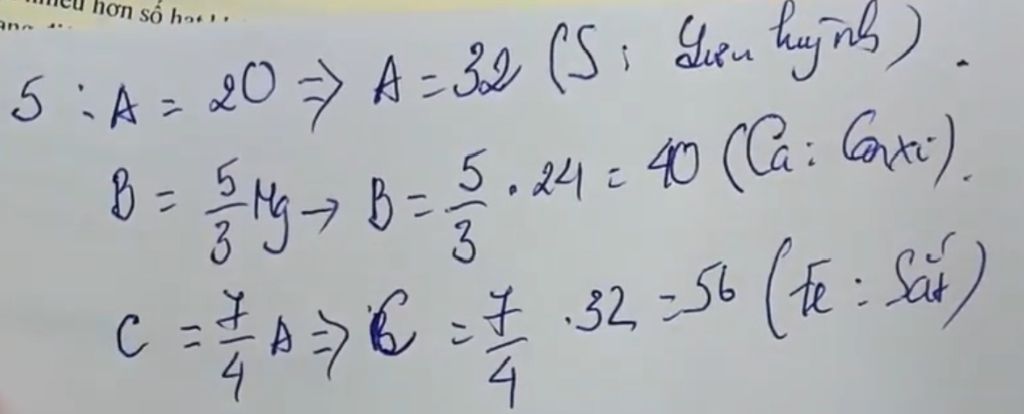 nhiều hơn số hạt
5 : A = 20 => A = 32 (S : Lưu huỳnh).
B = 5/3 Mg → B = 5/3 . 24 = 40 (Ca : Canxi).
C = 7/4 A => C = 7/4 . 32 = 56 (Fe : Sắt)